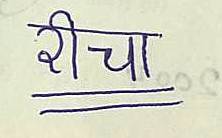 रीचा